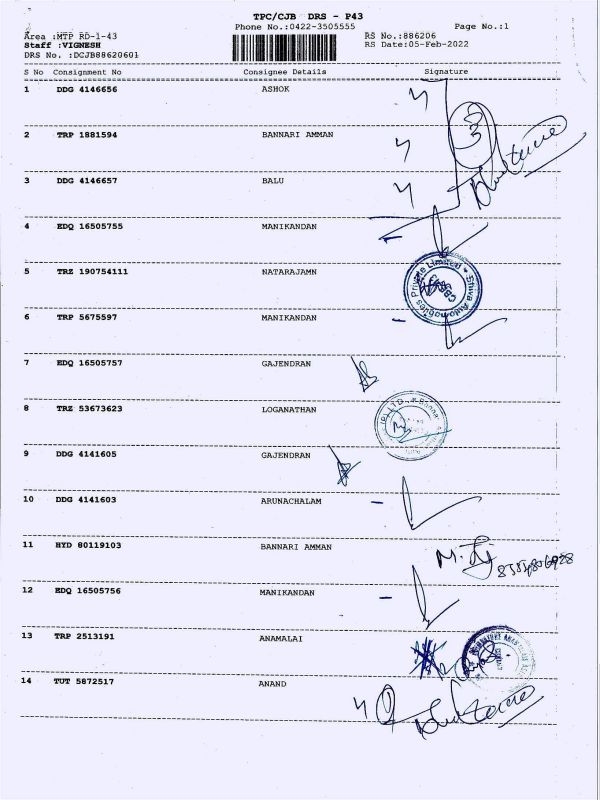 TPC/CJB DRS - P43
Phone No.:0422-3505555
Page No.:1
Area :MTP RD-1-43
RS No.:886206
Staff :VIGNESH
RS Date:05-Feb-2022
DRS No. :DCJB88620601
S No Consignment No Consignee Details Signature
1 DDG 4146656 ASHOK
2 TRP 1881594 BANNARI AMMAN
3 DDG 4146657 BALU
4 EDQ 16505755 MANIKANDAN
5 TRZ 190754111 NATARAJAMN
Shiva Automobiles Private Limited
6 TRP 5675597 MANIKANDAN
7 EDQ 16505757 GAJENDRAN
8 TRZ 53673623 LOGANATHAN
9 DDG 4141605 GAJENDRAN
10 DDG 4141603 ARUNACHALAM
11 HYD 80119103 BANNARI AMMAN
12 EDQ 16505756 MANIKANDAN
13 TRP 2513191 ANAMALAI
14 TUT 5872517 ANAND